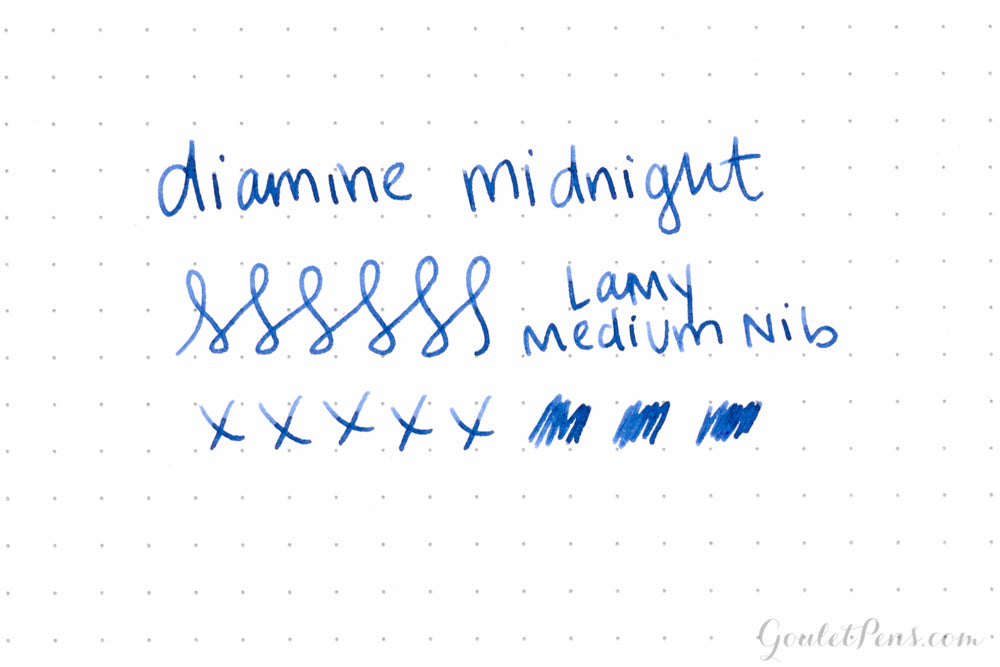 diamine midnight
Lamy
Medium Nib
x x x x x
GouletPens.com